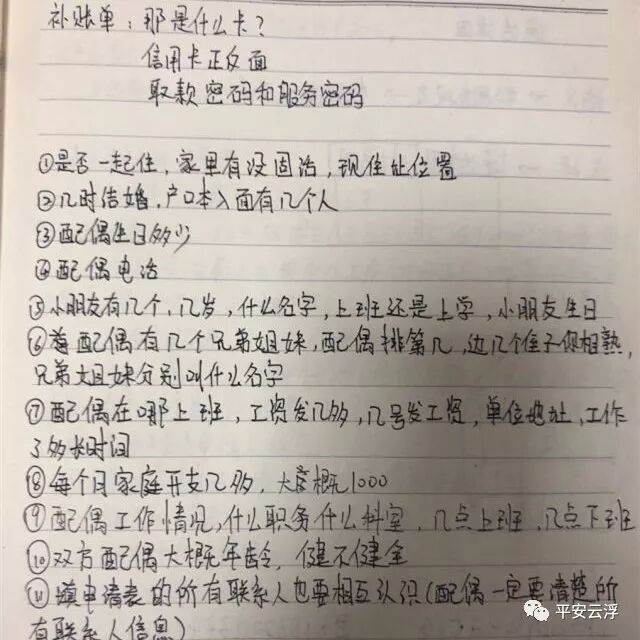 补账单：那是什么卡？
信用卡正反面
取款密码和服务密码
①是否一起住，家里有没固话，现住址位置
②几时结婚，户口本入面有几个人
③配偶生日多少
④配偶电话
⑤小朋友有几个，几岁，什么名字，上班还是上学，小朋友生日
⑥配偶有几个兄弟姐妹，配偶排第几，边几个侄子你相熟，
兄弟姐妹分别叫什么名字
⑦配偶在哪上班，工资发几多，几号发工资，单位地址，工作
了多长时间
⑧每个月家庭开支几多，大概1000
⑨配偶工作情况，什么职务什么科室，几点上班，几点下班
⑩双方配偶大概年龄，健不健全
⑪填申请表的所有联系人也要相互认识（配偶一定要清楚所
有联系人信息）
平安云浮